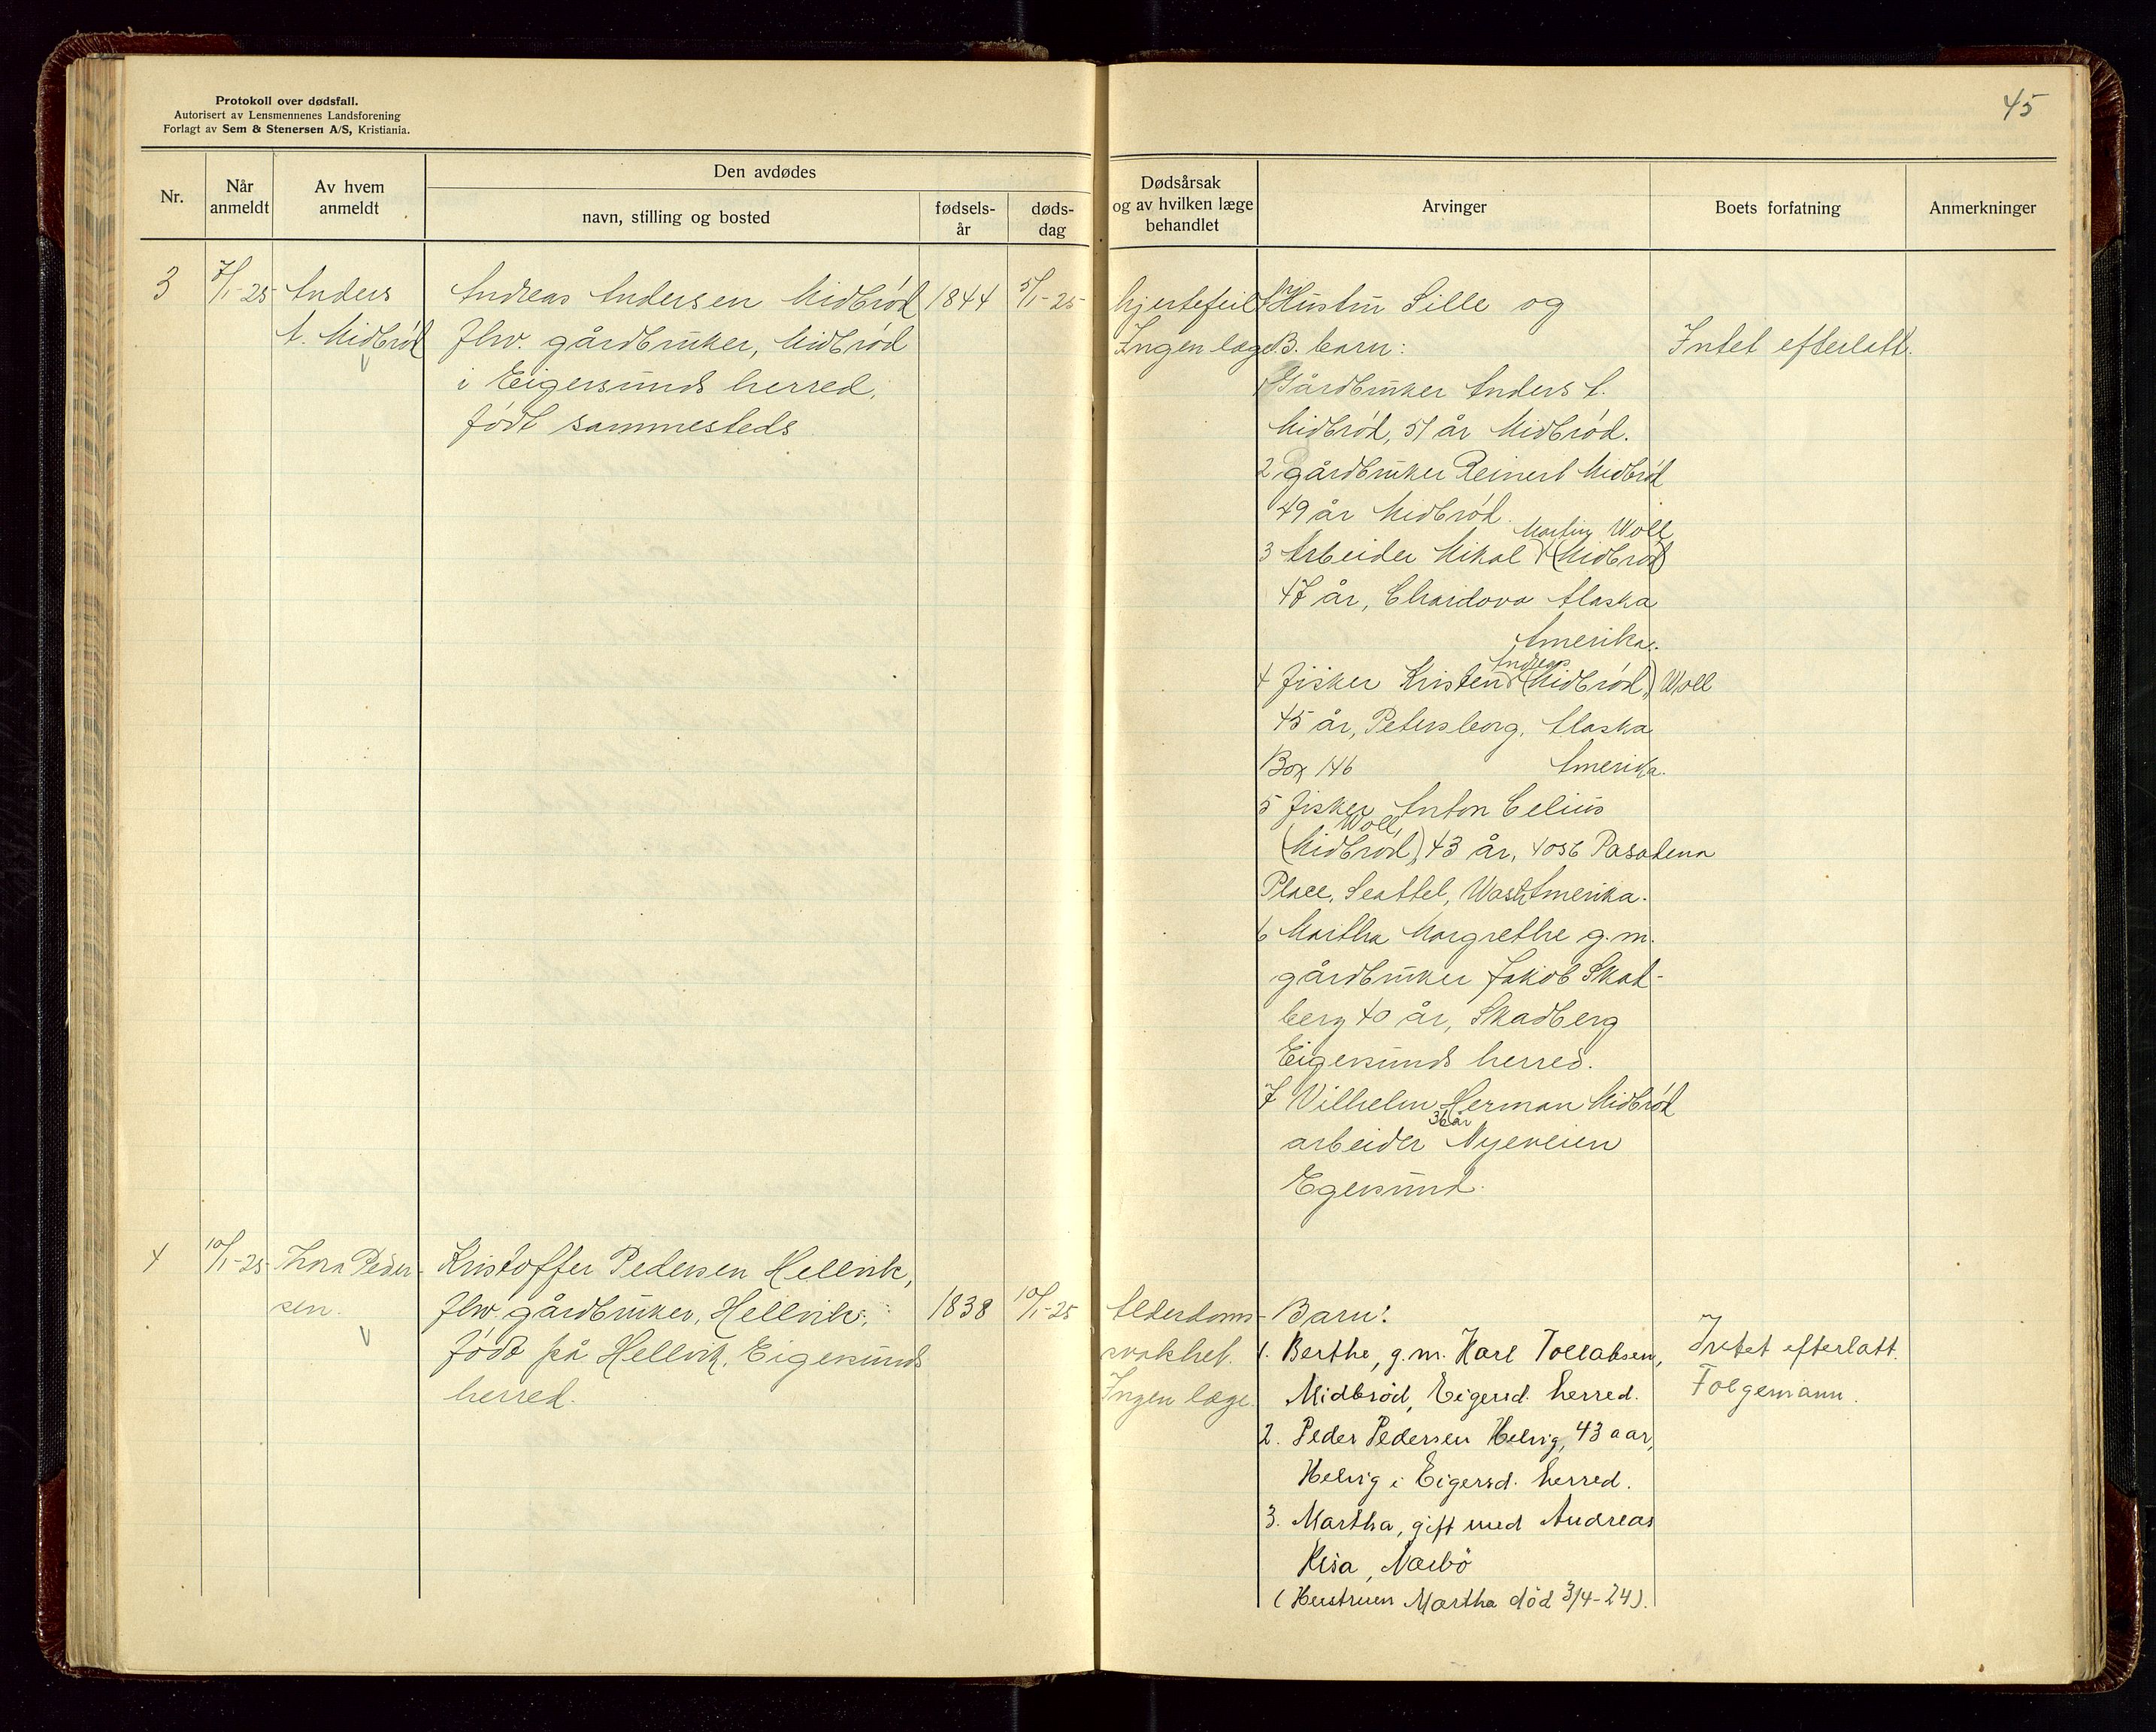 Protokoll over dødsfall.
Autorisert av Lensmennenes Landsforening
Forlagt av Sem & Stenersen A/S, Kristiania.
45
Nr.
Når
anmeldt
Av hvem
anmeldt
Den avdødes
navn, stilling og bosted
fødsels-
år
døds-
dag
Dødsårsak
og av hvilken læge
behandlet
Arvinger
Boets forfatning
Anmerkninger
3
7/1-25
Anders
A. Midbrød
V
Andreas Andersen Midbrød
Fhv. gårdbruker, Midbrød
i Eigersunds herred,
født sammesteds
1844
5/1-25
hjertefeil
Ingen læge
Hustru Sille og
B. barn:
1 Gårdbruker Anders A.
Midbrød, 51 år Midbrød.
2 gårdbruker Reinert Midbrød
49 år Midbrød.
Martin Woll
3 Arbeider Mikal (Midbrød)
47 år, Chardova Alaska
Amerika.
Andreas
4 Fisker Kristen (Midbrød) Woll
45 år, Petersborg, Alaska
Box 146 Amerika.
5 Fisker Anton Celius
Woll,
(Midbrød), 43 år, 4056 Pasadena
Place, Seattel, Wash Amerika.
6 Martha Margrethe g.m.
gårdbruker Jakob Skad-
berg 40 år, Skadberg
Eigersunds herred.
7 Vilhelm Herman Midbrød
36 år
arbeider Nyeveien
Egersund.
Intet efterlatt.
4
10/1-25
Thora Peder-
sen.
V
Kristoffer Pedersen Hellvik,
fhv. gårdbruker, Hellvik,
født på Hellvik, Eigersunds
herred.
1838
10/1-25
Alderdoms-
svakhet.
Ingen læge.
Barn:
1. Berthe, g.m. Karl Tollaksen,
Midbrød, Eigersd. herred.
2. Peder Pedersen Helvig, 43 aar,
Helvig i Eigersd. herred.
3. Martha, gift med Andreas
Risa, Nærbö
(Hustruen Martha död 3/4-24).
Intet efterlatt.
Folgemann.